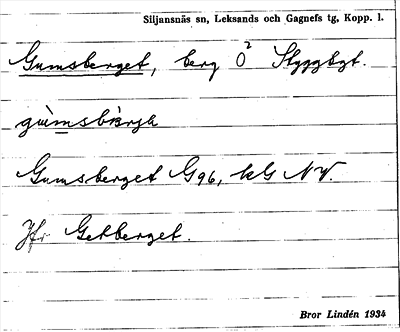 Siljansnäs sn, Leksands och Gagnefs tg, Kopp. l.
Gumsberget, berg Ö² Styggbgt.
gùmsbærjä
Gumsberget G96, kG NV.
Jfr Getberget.
Bror Lindén 1934